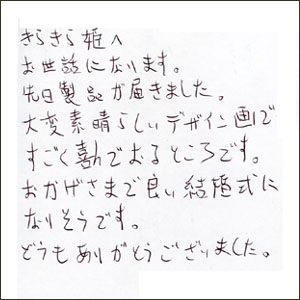 きらきら姫へ
お世話になります。
先日製品が届きました。
大変素晴らしいデザイン画で
すごく喜んでおるところです。
おかげさまで良い結婚式に
なりそうです。
どうもありがとうございました。